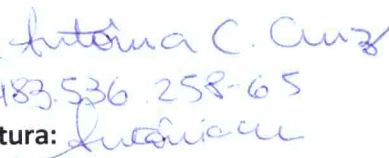 Antônia C. Cruz
483.536.258-65
tura: